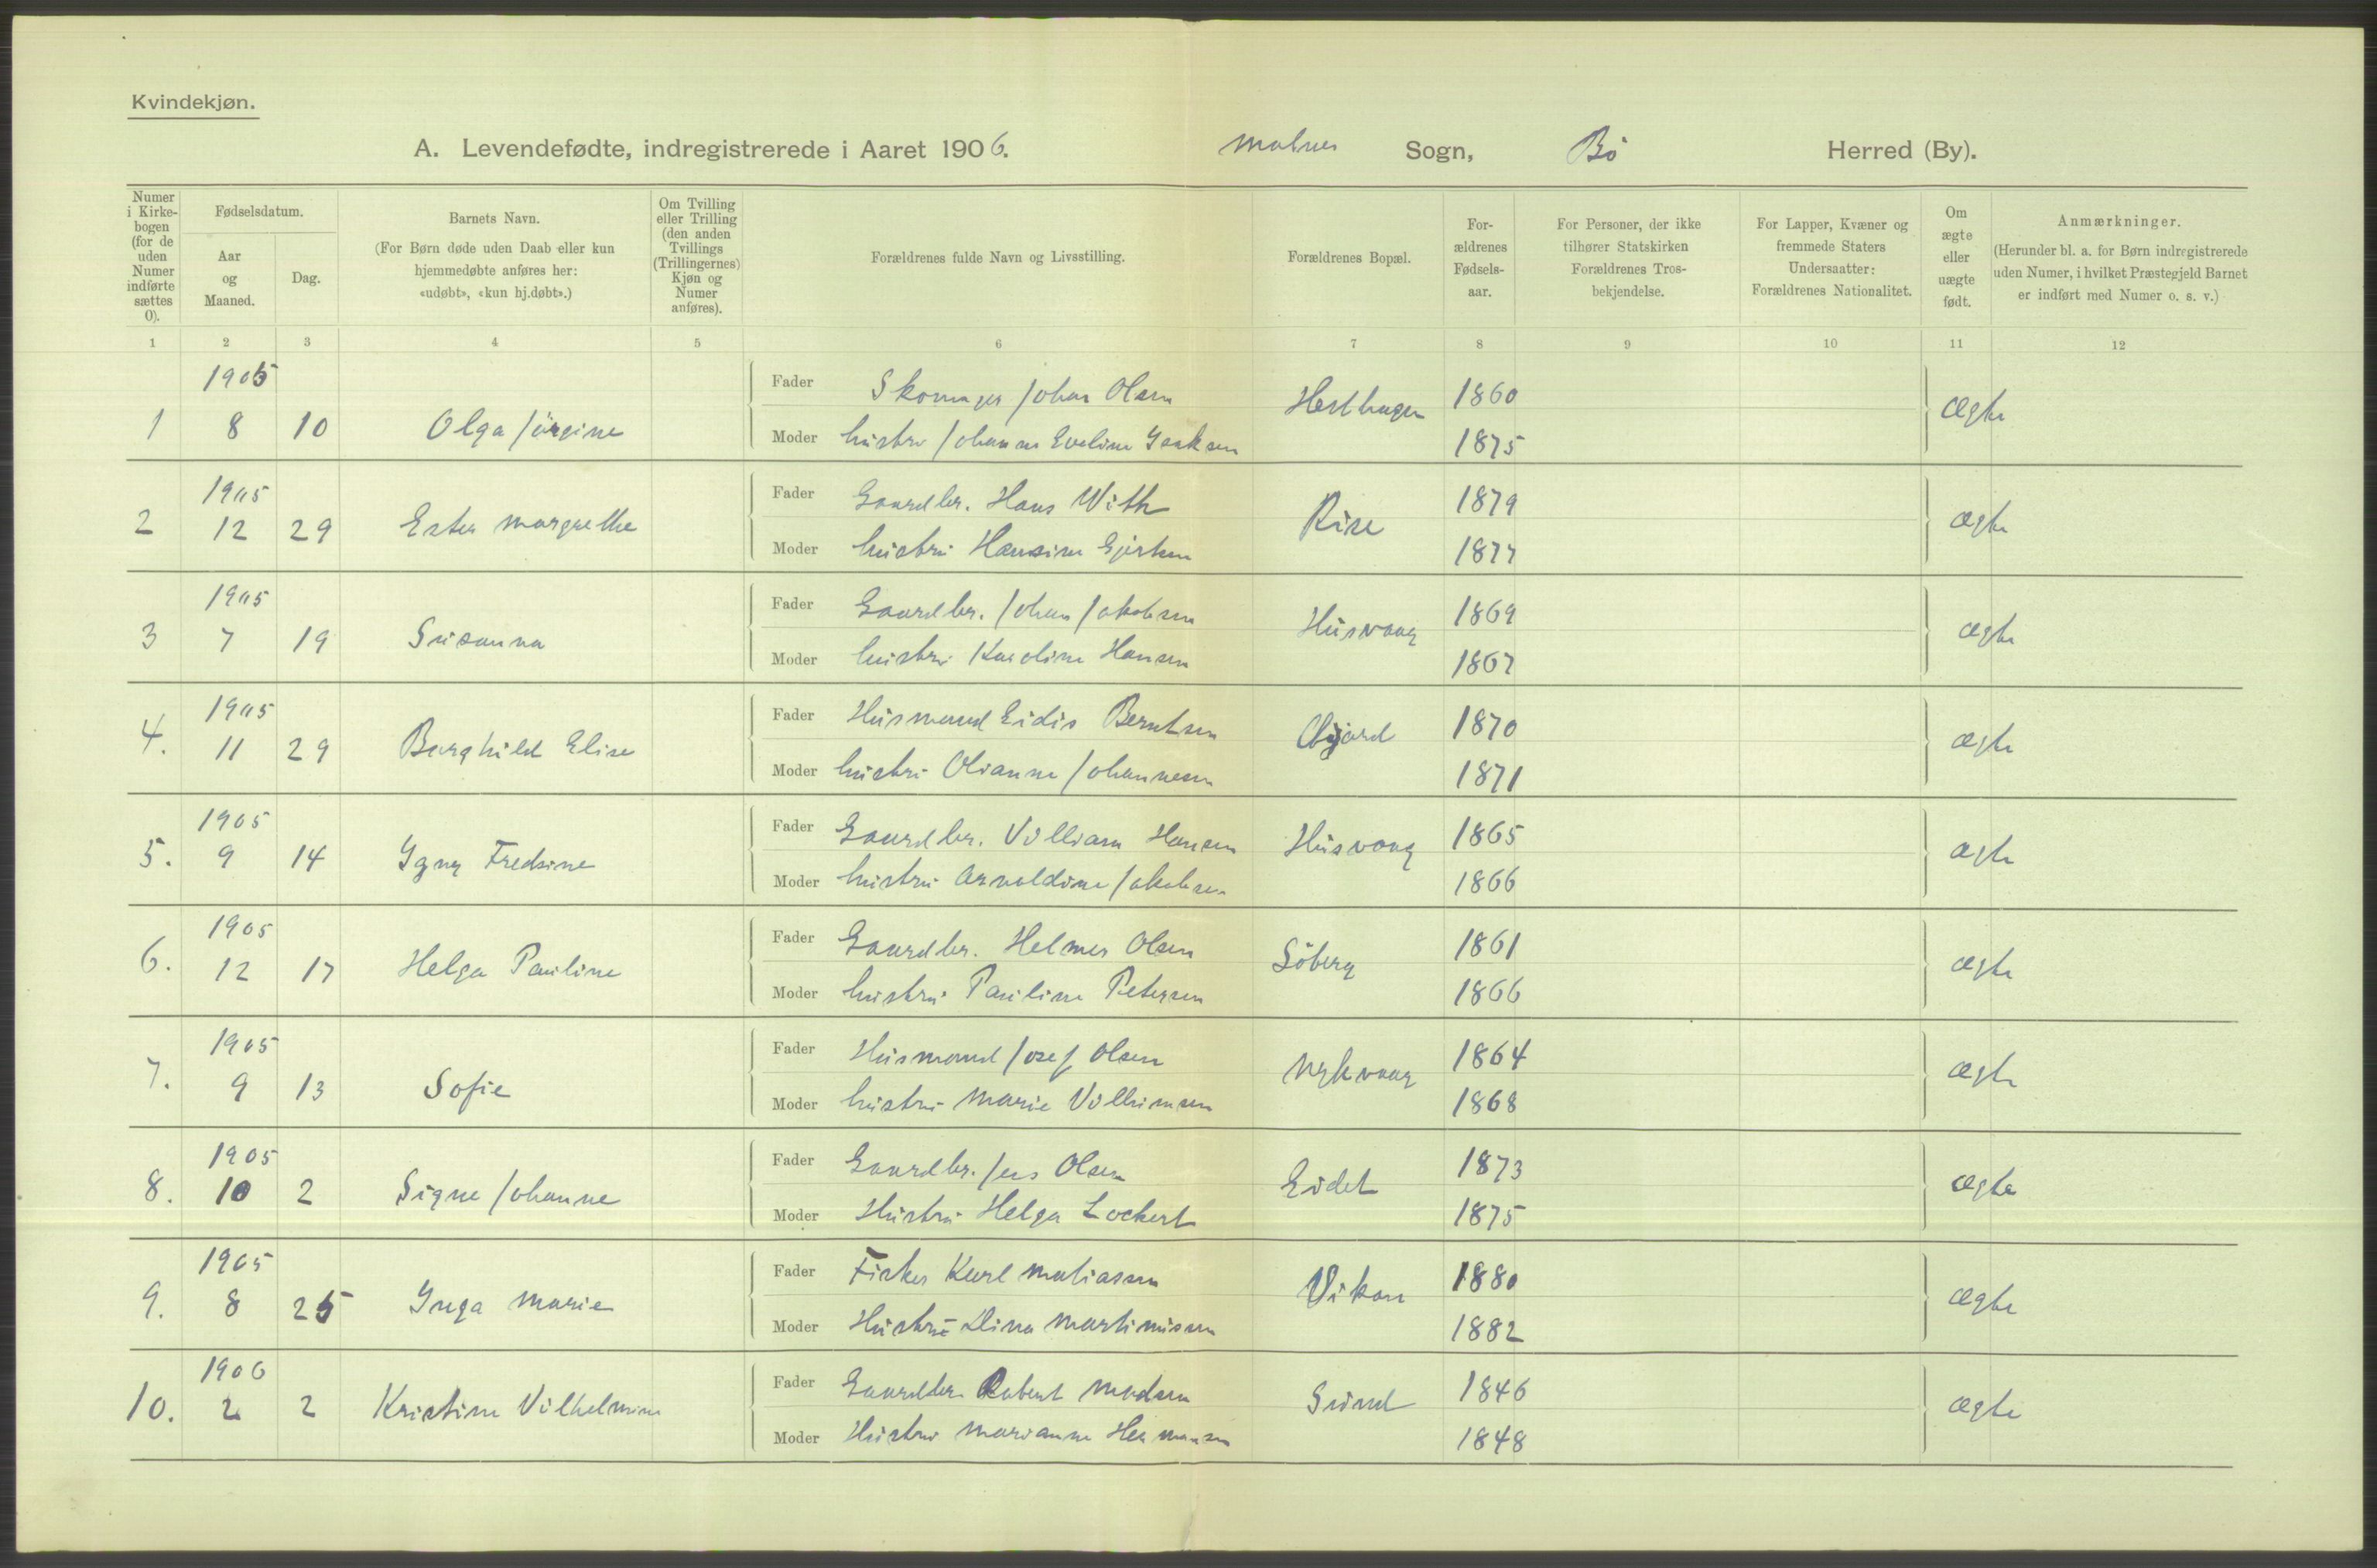 Kvindekjøn.
A. Levendefødte, indregistrerede i Aaret 1906. Malnes Sogn, Bö Herred (By).
Numer i Kirkebogen (for de uden Numer indførte sættes 0).
Fødselsdatum.
Aar og Maaned.
Dag.
Barnets Navn.
(For Børn døde uden Daab eller kun hjemmedøbte anføres her: «udøbt», «kun hj.døbt».)
Om Tvilling eller Trilling (den anden Tvillings (Trillingernes) Kjøn og Numer anføres).
Forældrenes fulde Navn og Livsstilling.
Forældrenes Bopæl.
Forældrenes Fødselsaar.
For Personer, der ikke tilhører Statskirken Forældrenes Trosbekjendelse.
For Lapper, Kvæner og fremmede Staters Undersaatter: Forældrenes Nationalitet.
Om ægte eller uægte født.
Anmærkninger.
(Herunder bl. a. for Børn indregistrerede uden Numer, i hvilket Præstegjeld Barnet er indført med Numer o. s. v.)
1 2 3 4 5 6 7 8 9 10 11 12
1905
Fader Skomager Johan Olsen Hesthagen 1860
1 8 10 Olga Jörgine ægte
Moder hustru Johanna Eveline Isaksen 1875
1905
Fader Gaardbr. Hans With Rise 1879
2 12 29 Ester Margrethe ægte
Moder hustru Hansine 1877
1905
Fader Gaardbr. Johan Jakobsen Husvaag 1869
3 7 19 Susanna ægte
Moder hustru Karoline Hansen 1867
1905
Fader Husmand Eidis Berntsen 1870
4. 11 29 Borghild Elise ægte
Moder hustru Olianna Johannesen 1871
1905
Fader Gaardbr. Villiam Hansen Husvaag 1865
5. 9 14 Fredsine ægte
Moder hustru Arnoldine Jakobsen 1866
1905
Fader Gaardbr. Helmer Olsen Söberg 1861
6. 12 17 Helga Pauline ægte
Moder hustru Pauline Petersen 1866
1905
Fader Husmand Josef Olsen Nykvaag 1864
7. 9 13 Sofie ægte
Moder hustru Marie Villumsen 1868
1905
Fader Gaardbr. Jens Olsen Eidet 1873
8. 10 2 Signe Johanne ægte
Moder Hustru Helga Lockert 1875
1905
Fader Fisker Karl Matiassen Vikan 1880
9. 8 25 Inga Marie ægte
Moder Hustru Dina Martinusen 1882
1906
Fader Gaardbr. Robert Madsen Sund 1846
10. 2 2 Kristine Vilhelmine ægte
Moder Hustru Marianne Hermansen 1848